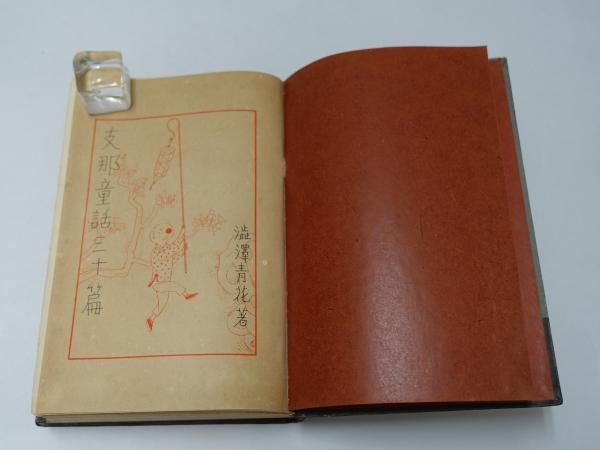 支那童話三十篇
澁澤青花著